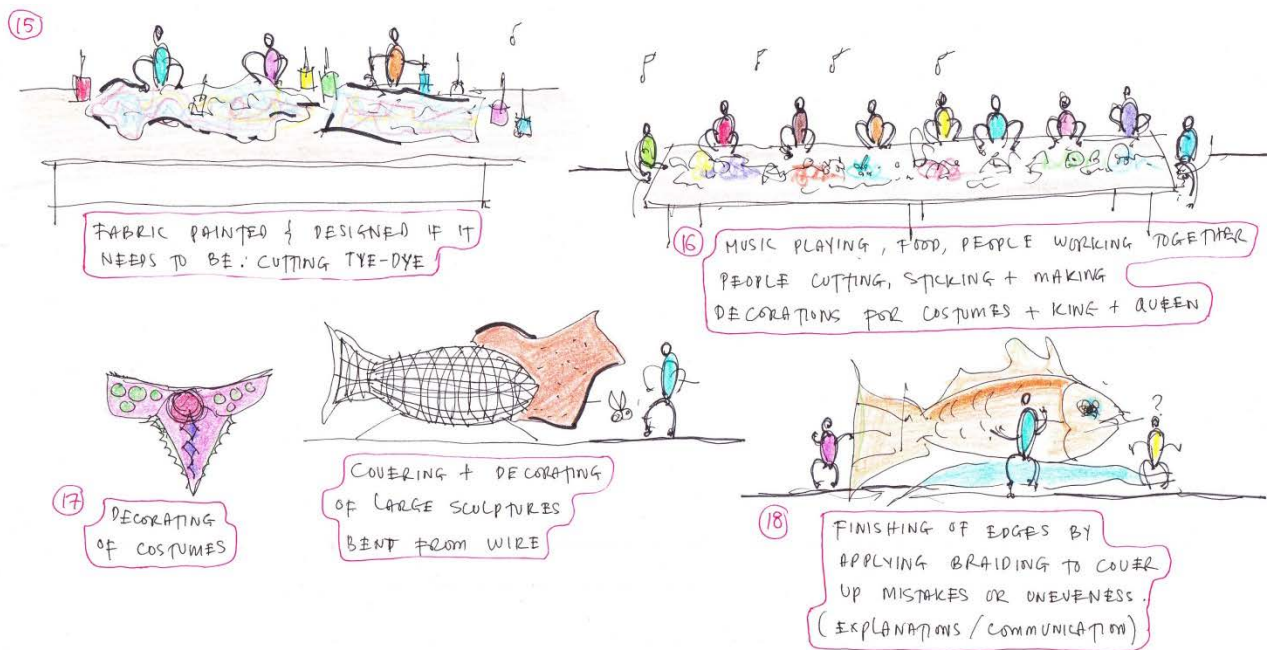 15
FABRIC PAINTED & DESIGNED IF IT
NEEDS TO BE. CUTTING TYE-DYE
16
MUSIC PLAYING, FOOD, PEOPLE WORKING TOGETHER
PEOPLE CUTTING, STICKING + MAKING
DECORATIONS FOR COSTUMES + KING + QUEEN
17
DECORATING
OF COSTUMES
COVERING + DECORATING
OF LARGE SCULPTURES
BENT FROM WIRE
?
18
FINISHING OF EDGES BY
APPLYING BRAIDING TO COVER
UP MISTAKES OR UNEVENESS.
(EXPLANATIONS/COMMUNICATION)